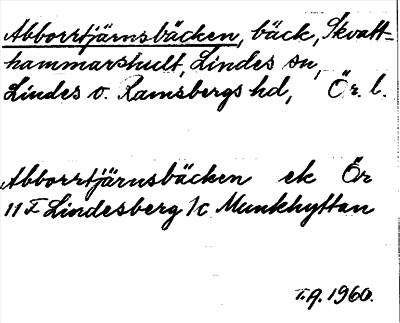 Abborrtjärnsbäcken, bäck, Skvatt-
hammarshult, Lindes sn,
Lindes o. Ramsbergs hd, Ör. l.
Abborrtjärnsbäcken ek Ör
11 F Lindesberg 1c Munkhyttan
T.A. 1960.